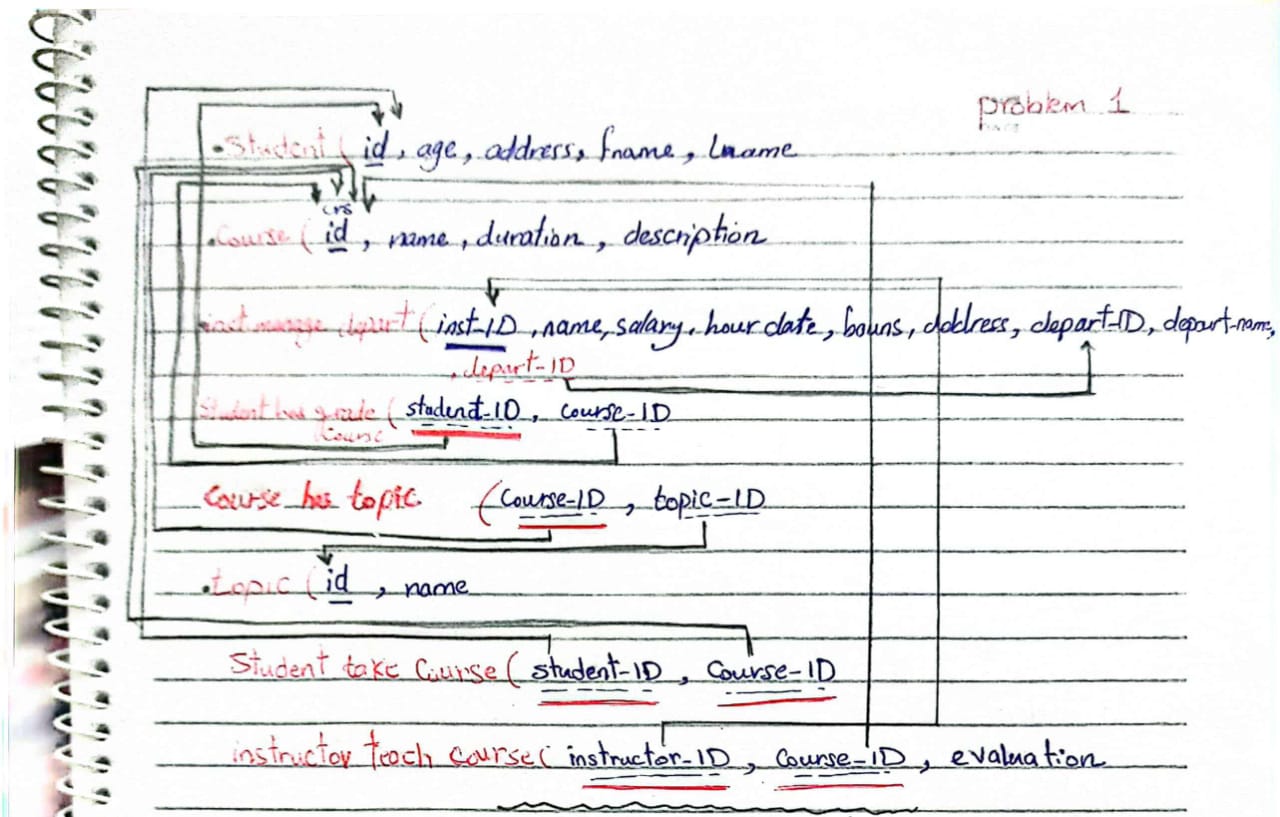 problem 1
. Student ( id, age, address, fname, Lname
crs
. Course ( id, name, duration, description
inst manage depart ( inst-ID, name, salary, hour date, bouns, address, depart-ID, depart-name,
, depart-ID
Student has grade ( student-ID, course-ID
Course
Course has topic ( Course-ID, topic-ID
. topic ( id, name
Student take Course ( student-ID, Course-ID
instructor teach course ( instructor-ID, Course-ID, evaluation